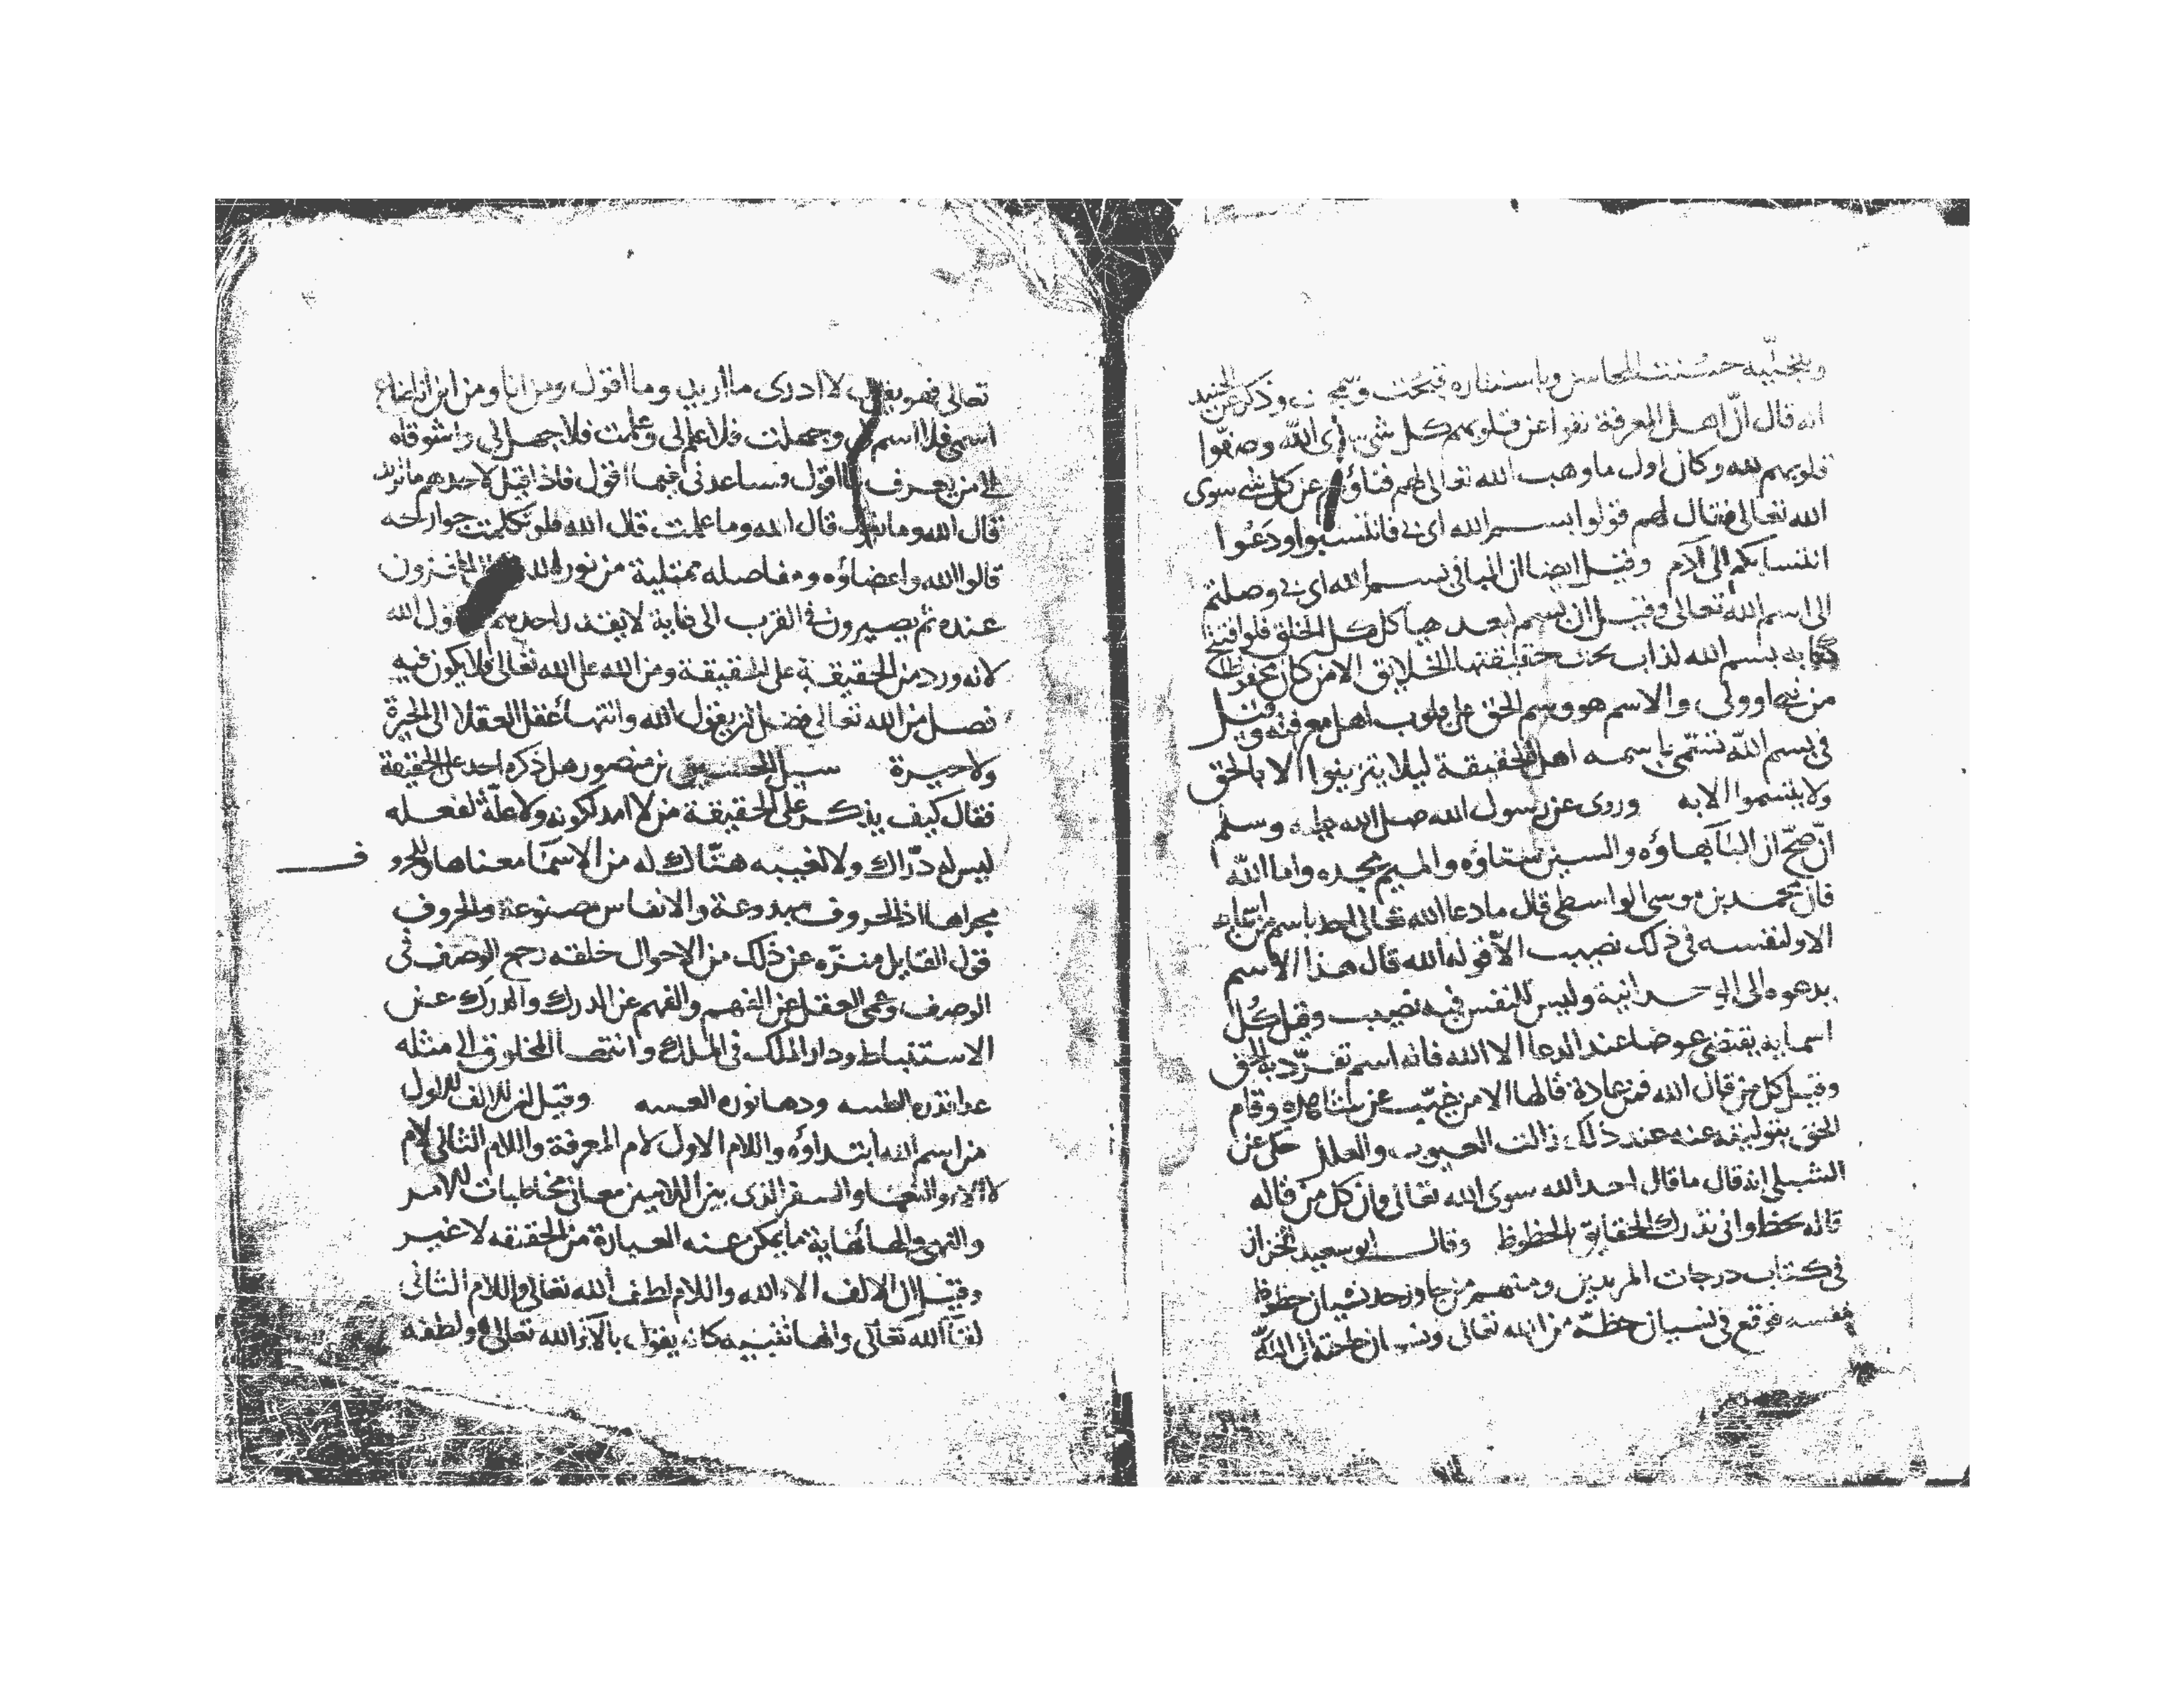 وبتجليه حسنت المحاسن وباستتاره قبحت وسمجت وذكر عن الجنيد
انه قال ان اهل المعرفة نفوا عن قلوبهم كل شي سوى الله وصفوا
قلوبهم لله وكان اول ما وهب الله تعالى لهم فناؤهم عن كل شي سوى
الله تعالى فقال لهم قولوا بسم الله اى بى فانتسبوا ودعوا
انتسابكم الى آدم وقيل ايضا ان البا في بسم الله اى بى وصلتم
الى اسم الله تعالى وقيل ان بسم لبعد هياكل كل الخلق فلو افتتح
كتابه بسم الله لذاب تحت حقيقتها الخلايق الا من كان محفوظا
من نبي او ولى والاسم هو وسم الحق على قلوب اهل معرفته وقيل
في بسم الله تسمى باسمه اهل الحقيقة ليلا يتزينوا الا بالحق
ولا يتسموا الا به وروى عن رسول الله صلى الله عليه وسلم
ان صح ان البآ بهاؤه والسين سناؤه والميم مجده واما الله
فان محمد بن موسى الواسطى قال ما دعا الله تعالى احد باسم من اسمايه
الا ولنفسه في ذلك نصيب الا قوله الله قال هذا الاسم
يدعوه الى الوحدانية وليس للنفس فيه نصيب وقيل كل
اسمايه يقتضى عوضا عند الدعا الا الله فانه اسم تفرد به الحق
وقيل كل من قال الله فمن عادة قالها الا من غيب عن شاهده وقام
الحق بتوليته عنه عند ذلك زالت العيوب والعلل حكى عن
الشبلي انه قال ما قال احد الله سوى الله تعالى وان كل من قاله
قاله بحظ وانى تدرك الحقايق بالحظوظ وقال ابو سعيد الخراز
فى كتاب درجات المريدين ومنهم من جاوز حد نسيان حظوظ
نفسه فوقع في نسيان حظه من الله تعالى ونسيان حاجته الى الله
تعالى فهو يقول لا ادرى ما اريد وما اقول ومن انا ومن اين انا ضاع
اسمى فلا اسم لى وجهلت فلا علم لى وعلمت فلا جهل لى واشوقاه
الى من يعرف ما اقول ويساعدنى فيما اقول فاذا قيل لاحدهم ما تريد
قال الله وما تقول قال الله وما علمت قال الله فلو تكلمت جوارحه
قالوا الله واعضاؤه ومفاصله ممتلية من نور الله المخزون
عنده ثم يصيرون في القرب الى غاية لا يقدر احد منهم يقول الله
لانه ورد من الحقيقة على الحقيقة ومن الله على الله تعالى ولا يكون فيه
فصل من الله تعالى فضل ان يقول الله وانتها عقل العقلا الى الحيرة
ولا حيرة سيل الحسين بن منصور هل ذكره احد على الحقيقة
فقال كيف يذكر على الحقيقة من لا امد لكونه ولا علة لفعله
ليس له دراك ولا لغيبه هتاك له من الاسمآ معناها وللحروف
مجراها اذ الحروف مبدوعة والانفاس مصنوعة والحروف
قول القايل منزه عن ذلك من الاحوال خلقه رجع الوصف في
الوصف وعمى العقل عن الفهم والفهم عن الدرك والدرك عن
الاستنباط ودار الملك في الملك وانتها المخلوق الى مثله
وقيل ان الالف الاول
من اسم الله ابتداؤه واللام الاول لام المعرفة واللام الثاني لام
الآلاء والنعما والسطر الذى بين اللامين معاني مخاطبات الامر
والنهى والها نهاية ما يمكن عنه العبارة من الحقيقه لا غير
وقيل ان الالف الاء الله واللام لطف الله تعالى واللام الثانى
لقآ الله تعالى والها تنبيه كانه يقول بالآء الله تعالى ولطفه